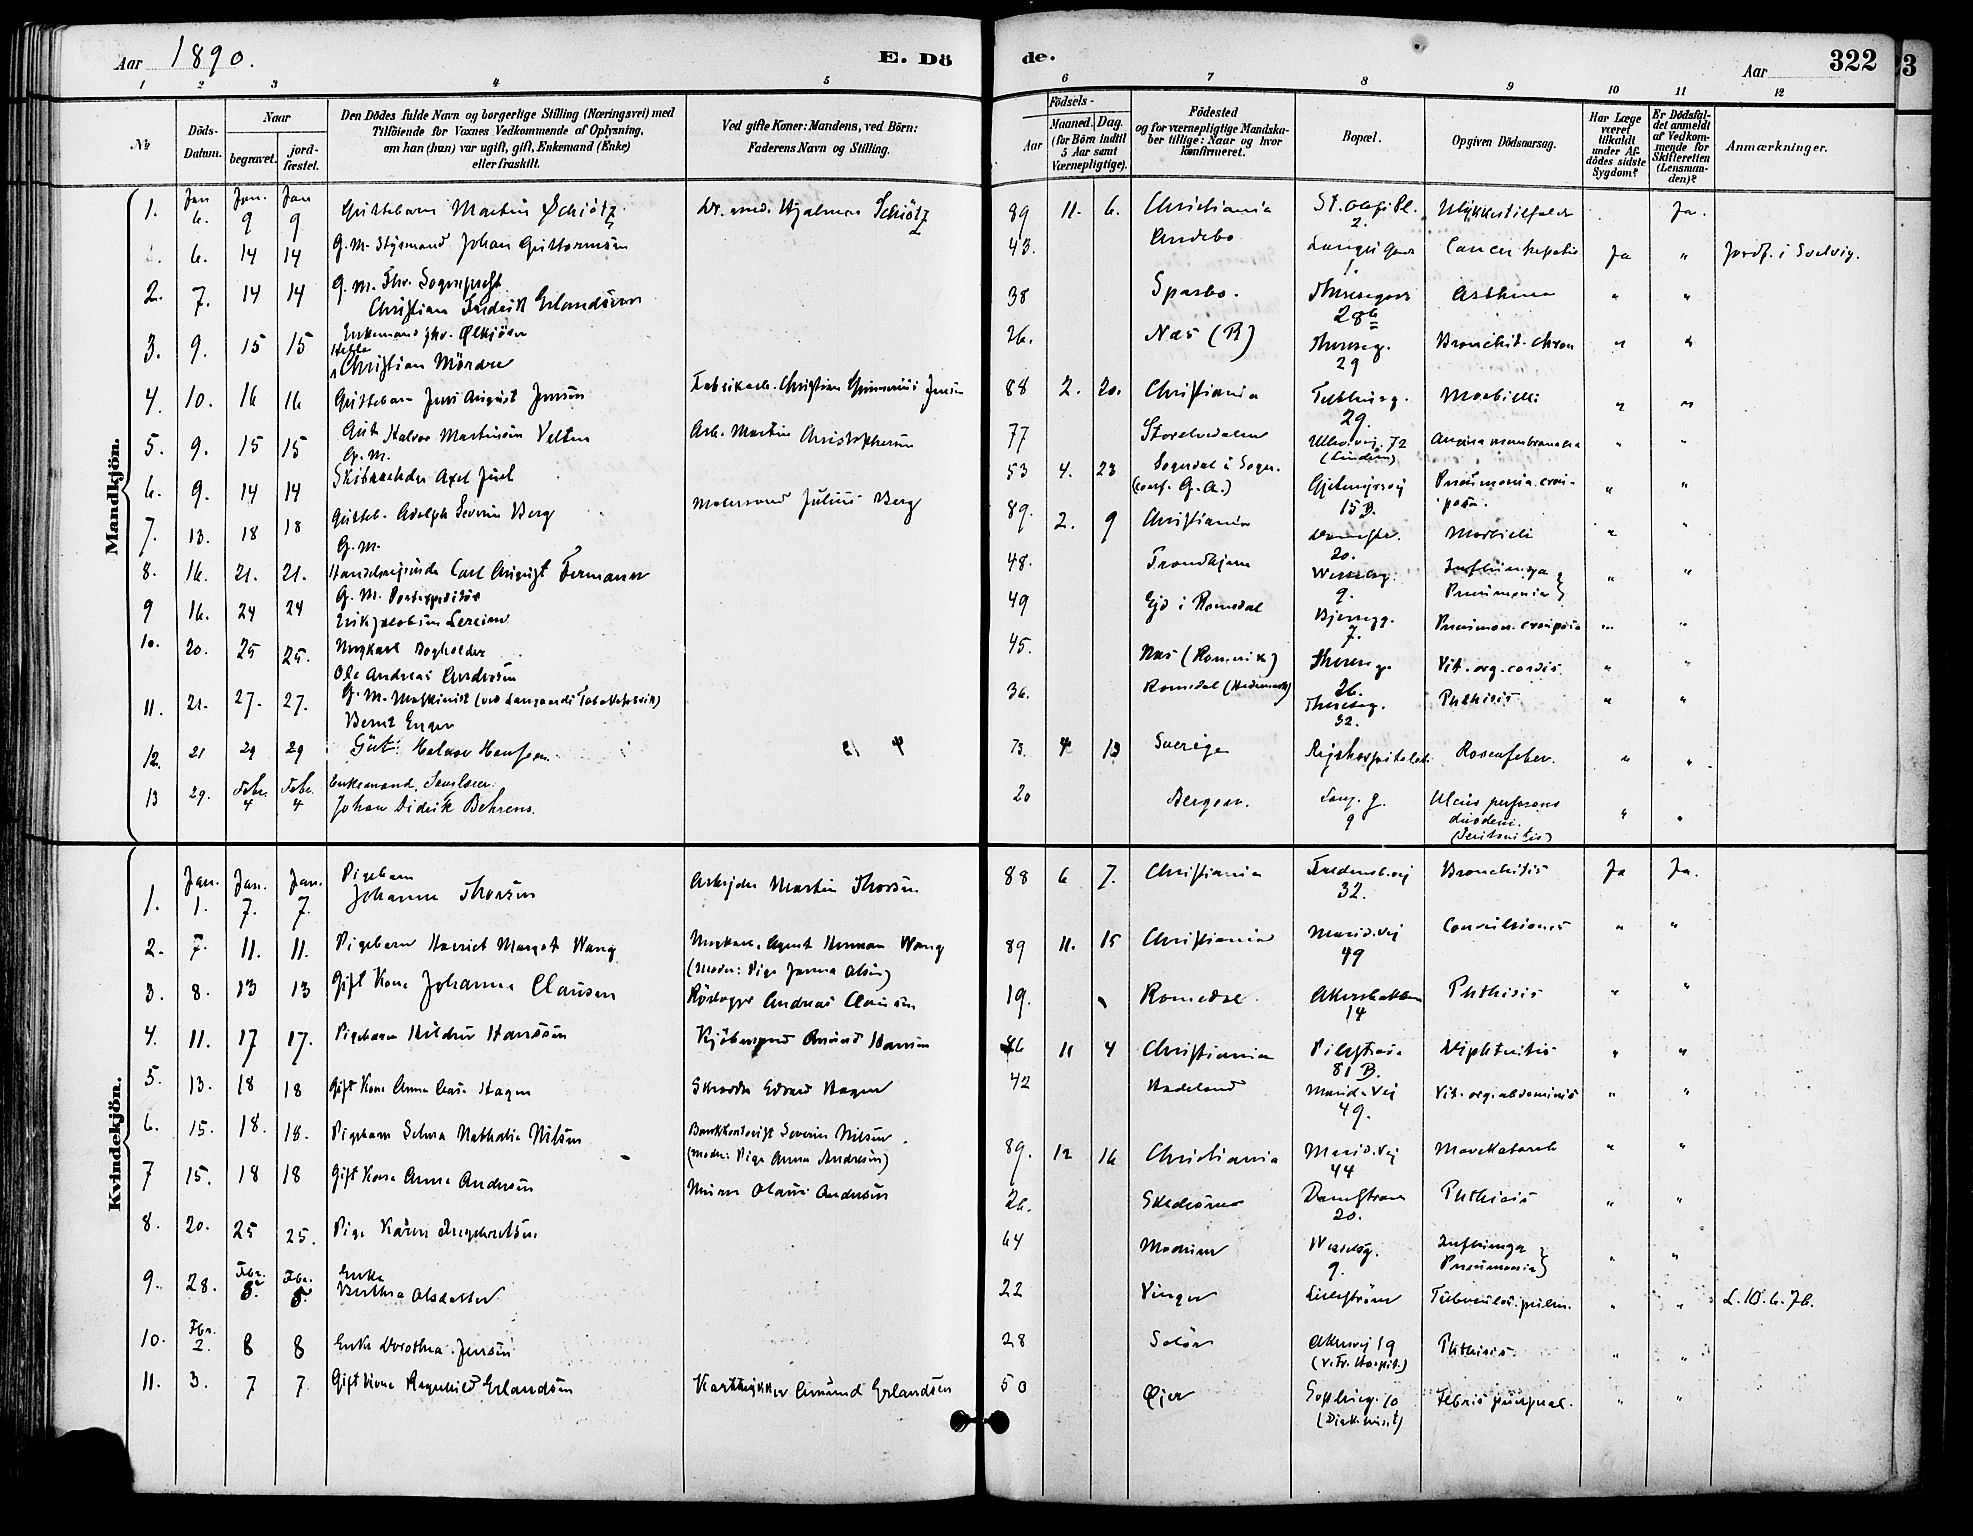 Aar 1890.
E. Dö
de.
Aar
322
3
1 2 3 4 5 6 7 8 9 10 11 12
№
Döds-Datum.
Naar begravet. jordfæstet.
Den Dödes fulde Navn og borgerlige Stilling (Næringsvei) med Tilföiende for Voxnes Vedkommende af Oplysning, om han (hun) var ugift, gift, Enkemand (Enke) eller fraskilt.
Ved gifte Koner: Mandens, ved Börn: Faderens Navn og Stilling.
Födsels-
Aar Maaned. Dag. (for Börn indtil 5 Aar samt Værnepligtige).
Födested og for værnepligtige Mandskaber tillige: Naar og hvor konfirmeret.
Bopæl.
Opgiven Dödsaarsag.
Har Læge været tilkaldt under Afdödes sidste Sygdom?
Er Dödsfaldet anmeldt af Vedkommende for Skifteretten (Lensmanden)?
Anmærkninger.
Mandkjön.
1. Jan 6. Jan. 9 Jan 9 Guttebarn Martin Schiötz Dr. med. Hjalmar Schiötz 89 11. 6. Christiania St. Olafs Pl. 2. Ulykkestilfælde Ja.
6. 14 14 G. M. Styrmand Johan Guttormsen 43. Andebo 1. Cancer hepatis Ja " Jordf. i Svelvig.
2. 7. 14 14 G. M. Fhv. Sogneprest Christian Frederik Erlandsen 38 Sparbo. Theresegade 28b Asthma " "
3. 9. 15 15 Enkemand fhv. Christian Mördre 26. Næs (R) Thereseg. 29 Bronchit. chron " "
4. 10. 16 16 Guttebarn Jens August Jensen Fabrikarb. Christian Gunnerius Jensen 88 2. 20. Christiania 29. Morbilli " "
5. 9. 15 15 Gut Halvor Martinsen Velten Arb. Martin Christophersen 77 Storelvedalen 72 Angina membranacea " "
6. 9. 14 14 G. M. Axel Juel 53 4. 23 Sogndal i Sogn. (conf. G. A.) 15 B. Pneumonia crouposa. " "
7. 13. 18 18 Gutteb. Adolph Severin Berg Malersvend Julius Berg 89. 2. 9 Christiania 20. Morbilli " "
8. 16. 21. 21. G. M. Carl August Fermann 48. Trondhjem Wesselsg. 9. Influenza Pneumonia } " "
9 16. 24 24 G. M. Postexpeditör Erik Jacobsen 49 Eid i Romsdal 7. Pneumon. crouposa " "
10. 20. 25 25. Ungkarl Bogholder Ole Andreas Andersen 45. Næs (Romerike) Thereseg. 26. Vit. org. cordis " "
11. 21. 27. 27. G. M. Maskinist (ved Langaards Tobaksfabrik) Bernt Enger 36. Romedal (Hedemark) Thereseg. 32. Phthisis " "
12. 21 29 29 Gut Halvor Hansen 73. 4 13 Sverige Rigshospitalet Rosenfeber. " "
13 29. Febr. 4 Febr. 4 Enkemand Johan Didrik Behrens. 20 Bergen. Lang. g. 9 Ulcus perforans duodeni. (Peritonitis) " "
Kvindekjön.
1. Jan. 1. Jan. 7. Jan. 7. Pigebarn Johanne Thorsen Arbejder Martin Thorsen 88 6 7. Christiania Fredensb.vej 32. Bronchitis Ja Ja.
2. 7. 11. 11. Pigebarn Harriet Margot Wang Ungkarl. Agent Herman Wang (Moder: Pige Janna Olsen) 89 11. 15 Christiania Marid.vej 49 Convulsiones " "
3. 8. 13 13 Gift Kone Johanne Clausen Andreas Clausen 19. Romedal Akersbakken 14 Phthisis " "
4. 11. 17 17. Pigebarn Hildur Hanssen Kjöbmand Amund Hansen 86 11 4 Christiania Pilestræde 81 B. Diphteritis " "
5. 13. 18 18 Gift Kone Anna Hagen Skrædder Edvard Hagen 42 Hadeland Marid. Vej 49. Vit. org. abdominis " "
6. 15. 18. 18. Pigebarn Selma Nathalia Nilsen Severin Nilsen. (Moder: Pige Anna Andresen) 89. 12 16 Christiania Marid. Vej 44 Mavekatarrh " "
7 15. 18 18 Gift Kone Anne Andersen Murer Olaus Andersen 26. Skedsmo Damstræde 20. Phthisis " "
8. 20. 25 25. Pige Karen Ingebretsen 64 Modum Wesselsg. 9. Influenza Pneumonia } " "
9. 28. Febr. 5. Febr. 5. Enke Berthea Olsdatter 22 Vinger Lilleström Tuberculos. pulm. " " L. 10. 6. 76.
10. Fbr. 2. 8 8 Enke Dorothea Jensen 28 Solör Akersvej 19 (V. Fr. Hospit.) Phthisis. " "
11. 3. 7 7 Gift Kone Ragnhild Erlandsen Amund Erlandsen 50 Öjer 10 Febris puerperal. " "